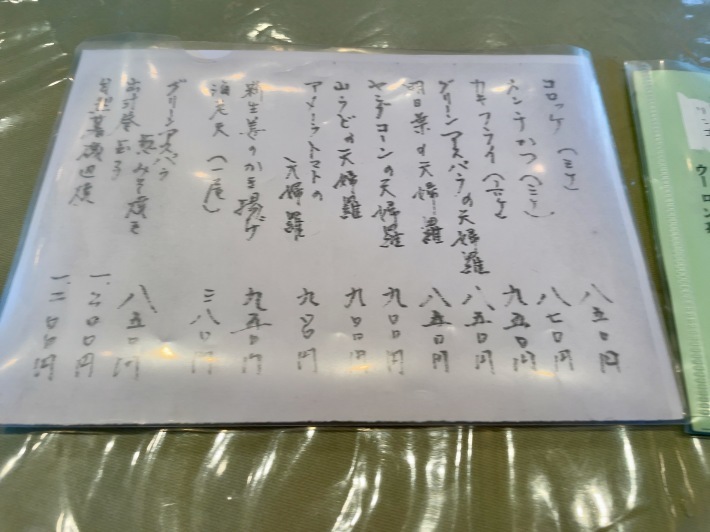 コロッケ（三ケ） 八五〇円
メンチかつ（二ケ） 八七〇円
カキフライ（六ケ） 九五〇円
グリーンアスパラの天婦羅 八五〇円
明日葉の天婦羅 八五〇円
ヤングコーンの天婦羅 九〇〇円
山うどの天婦羅 九〇〇円
アメーラトマトの
天婦羅 九〇〇円
のかき揚げ 九五〇円
海老天（一尾） 三八〇円
グリーンアスパラ
みそ漬を 八五〇円
出汁巻玉子 一、二〇〇円
磯辺揚 一、二〇〇円
ウーロン茶